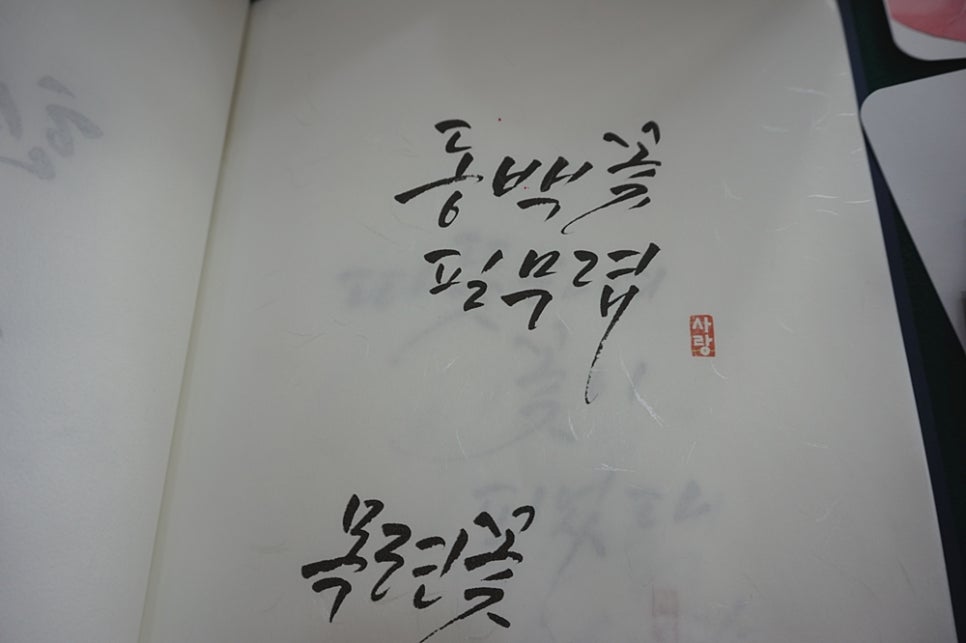 동백꽃
필무렵
사랑
목련꽃